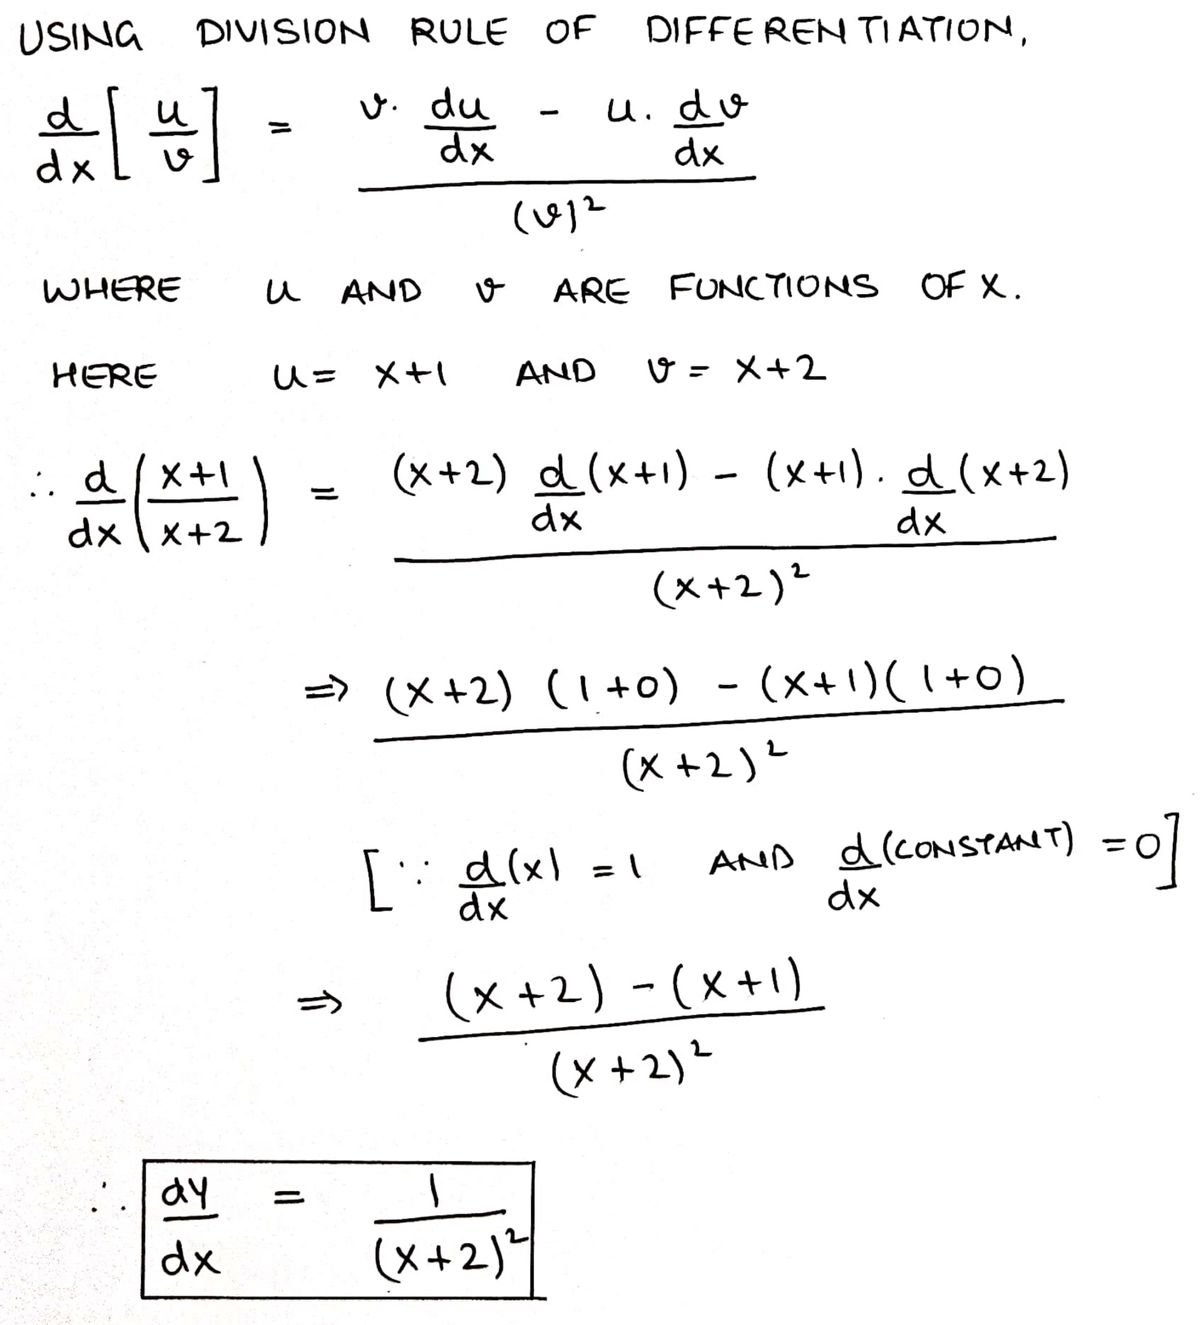 USING DIVISION RULE OF DIFFERENTIATION,
d/dx [u/v] = (v. du/dx - u. dv/dx) / (v)²
WHERE u AND v ARE FUNCTIONS OF X.
HERE u = x+1 AND v = x+2
∴ d/dx (x+1/x+2) = ((x+2) d/dx (x+1) - (x+1). d/dx (x+2)) / (x+2)²
⇒ ((x+2) (1+0) - (x+1)(1+0)) / (x+2)²
[∵ d/dx (x) = 1 AND d/dx (CONSTANT) = 0]
⇒ ((x+2) - (x+1)) / (x+2)²
∴ dy/dx = 1/(x+2)²